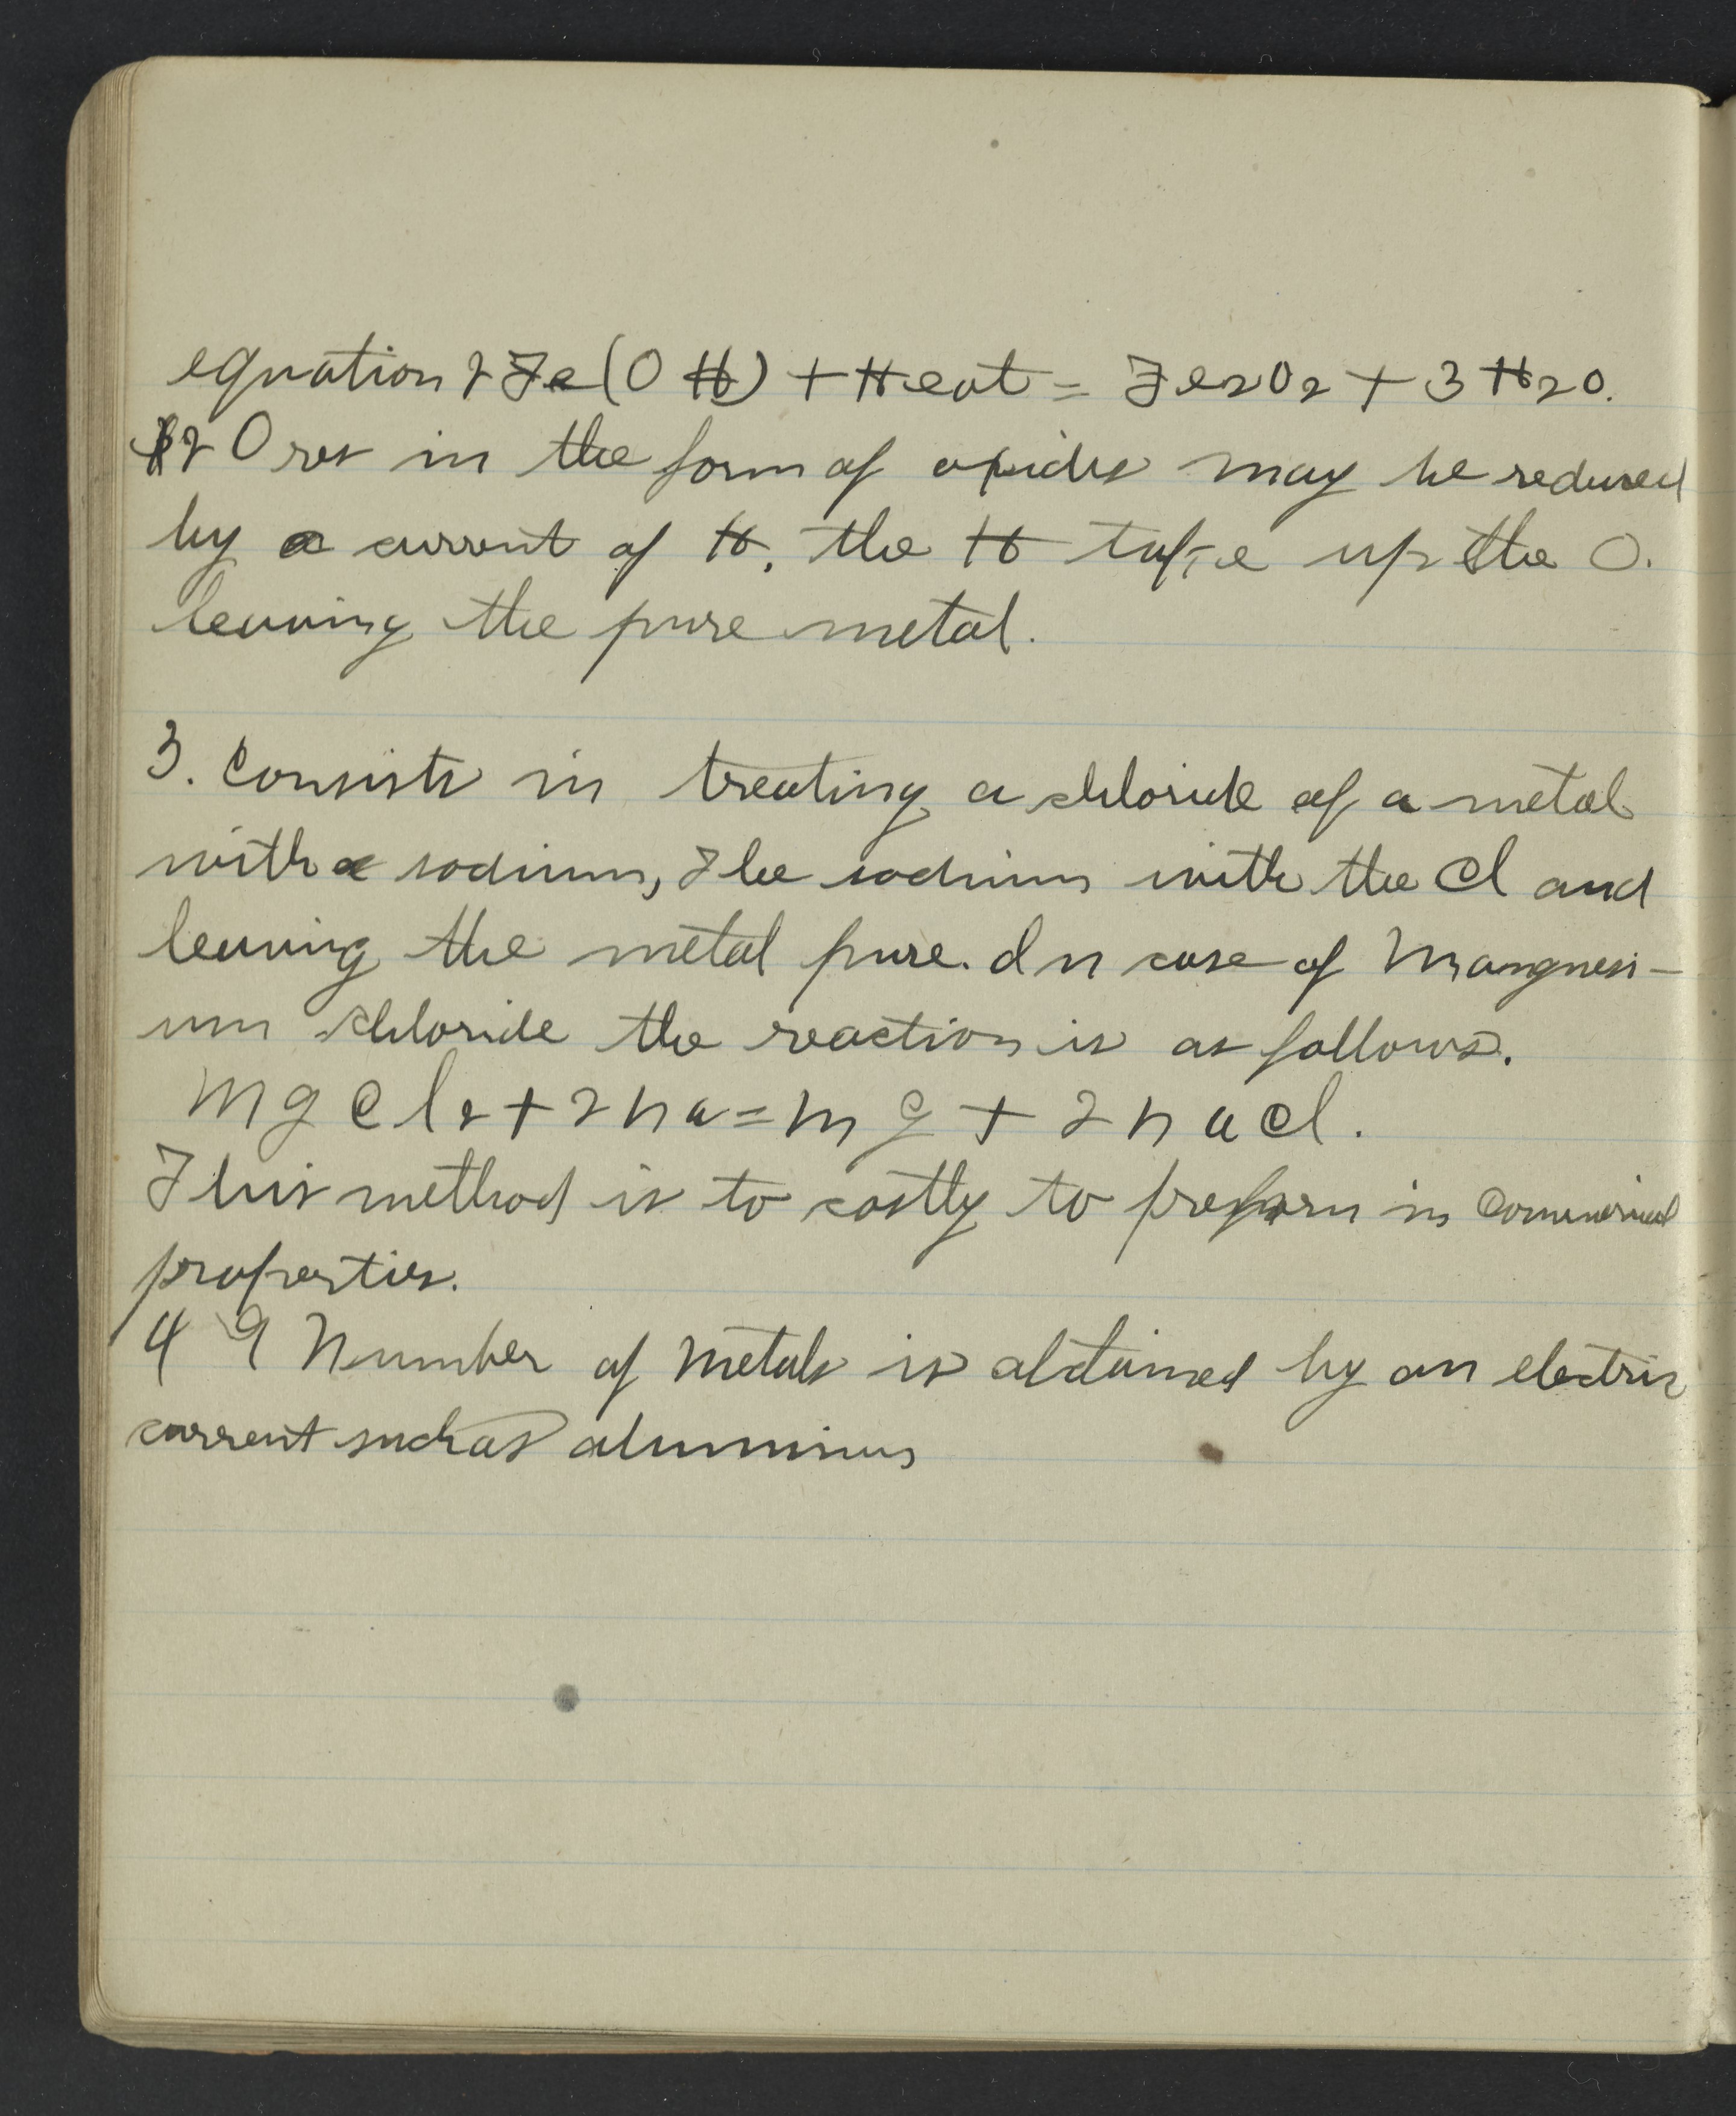 equation 2Fe(OH) + Heat = Fe2O2 + 3H2O.
2 Ores in the form of oxides may be reduced
by a current of H, the H take up the O.
leaving the pure metal.
3. Consists in treating a chloride of a metal
with a sodium, The sodium with the Cl and
leaving the metal pure. In case of Mangnesi-
um chloride the reaction is as follows.
MgCl2+2Na=Mg + 2NaCl.
This method is to costly to preform in Commerical
properties.
4 A Number of Metals is obtained by an electric
current such as aluminum